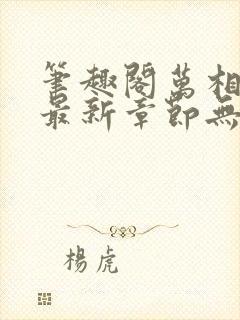 筆趣閣萬相
最新章節無
楊虎